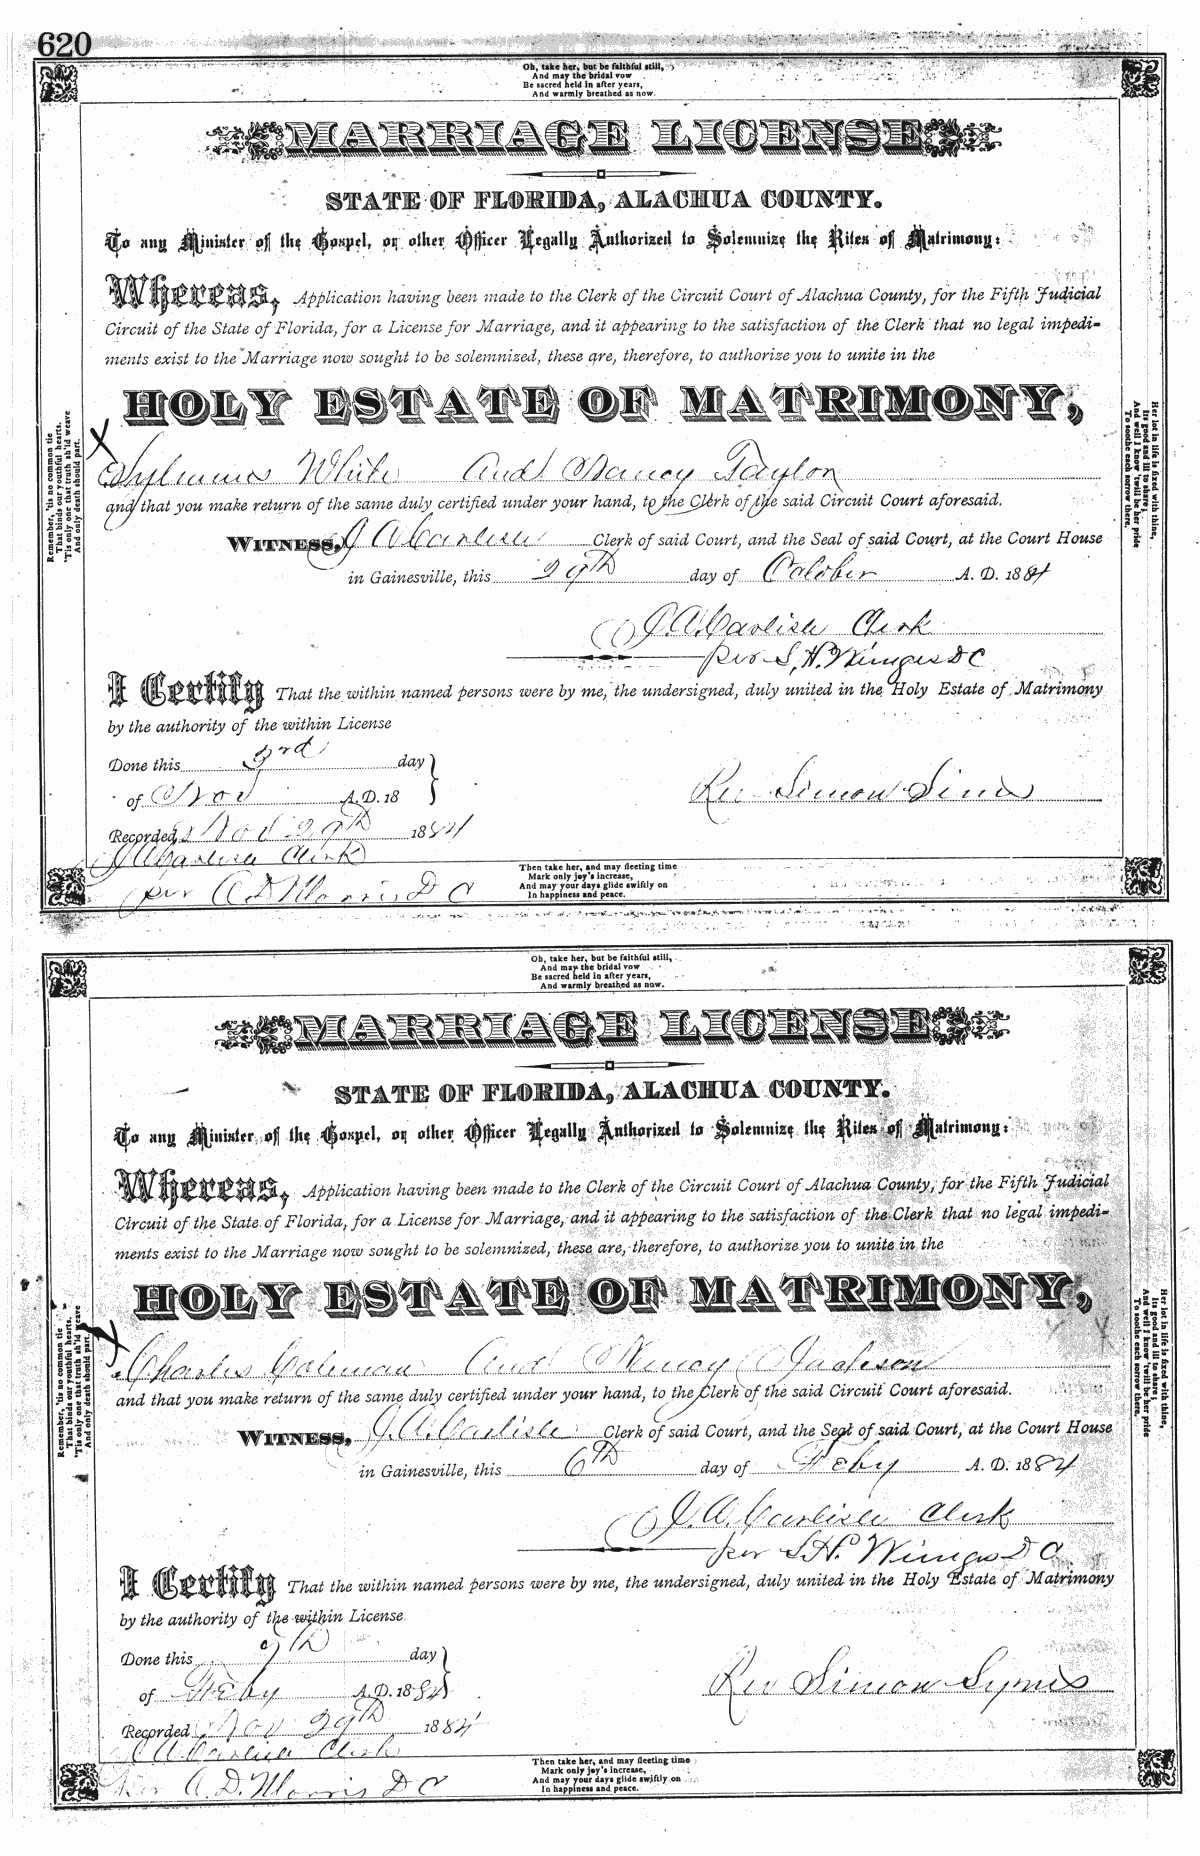 620
Oh, take her, but be faithful still,
And may the bridal vow
Be sacred held in after years,
And warmly breathed as now.
MARRIAGE LICENSE
STATE OF FLORIDA, ALACHUA COUNTY.
To any Minister of the Gospel, or other Officer Legally Authorized to Solemnize the Rites of Matrimony:
Whereas, Application having been made to the Clerk of the Circuit Court of Alachua County, for the Fifth Judicial
Circuit of the State of Florida, for a License for Marriage, and it appearing to the satisfaction of the Clerk that no legal impedi-
ments exist to the Marriage now sought to be solemnized, these are, therefore, to authorize you to unite in the
HOLY ESTATE OF MATRIMONY,
X
White and Nancy Taylor
and that you make return of the same duly certified under your hand, to the Clerk of the said Circuit Court aforesaid.
WITNESS, J A Carlisle Clerk of said Court, and the Seal of said Court, at the Court House
in Gainesville, this 29th day of October A. D. 1884
J. A. Carlisle Clerk
per S. H. Wienges D C
I Certify That the within named persons were by me, the undersigned, duly united in the Holy Estate of Matrimony
by the authority of the within License
Done this 3rd day
of Nov A. D. 18
Rev Simon Sims
Recorded, Nov 29th 1884
J A Carlisle Clerk
per A. D. Morris D C
Remember, 'tis no common tie
That binds our youthful hearts,
'Tis only one that truth sh'ld weave
And only death should part.
Her lot in life is fixed with thine,
Its good and ill to share;
And well I know 'twill be her pride
To soothe each sorrow there.
Then take her, and may fleeting time
Mark only joy's increase,
And may your days glide swiftly on
In happiness and peace.
Oh, take her, but be faithful still,
And may the bridal vow
Be sacred held in after years,
And warmly breathed as now.
MARRIAGE LICENSE
STATE OF FLORIDA, ALACHUA COUNTY.
To any Minister of the Gospel, or other Officer Legally Authorized to Solemnize the Rites of Matrimony:
Whereas, Application having been made to the Clerk of the Circuit Court of Alachua County, for the Fifth Judicial
Circuit of the State of Florida, for a License for Marriage, and it appearing to the satisfaction of the Clerk that no legal impedi-
ments exist to the Marriage now sought to be solemnized, these are, therefore, to authorize you to unite in the
HOLY ESTATE OF MATRIMONY,
X
Charles Coleman and Nancy Jackson
and that you make return of the same duly certified under your hand, to the Clerk of the said Circuit Court aforesaid.
WITNESS, J. A. Carlisle Clerk of said Court, and the Seal of said Court, at the Court House
in Gainesville, this 6th day of Feby A. D. 1884
J. A. Carlisle Clerk
per S. H. Wienges D C
I Certify That the within named persons were by me, the undersigned, duly united in the Holy Estate of Matrimony
by the authority of the within License
Done this 9th day
of Feby A. D. 1884
Rev Simon Symes
Recorded Nov 29th 1884
J A Carlisle Clerk
per A. D. Morris D C
Remember, 'tis no common tie
That binds our youthful hearts,
'Tis only one that truth sh'ld weave
And only death should part.
Her lot in life is fixed with thine,
Its good and ill to share;
And well I know 'twill be her pride
To soothe each sorrow there.
Then take her, and may fleeting time
Mark only joy's increase,
And may your days glide swiftly on
In happiness and peace.